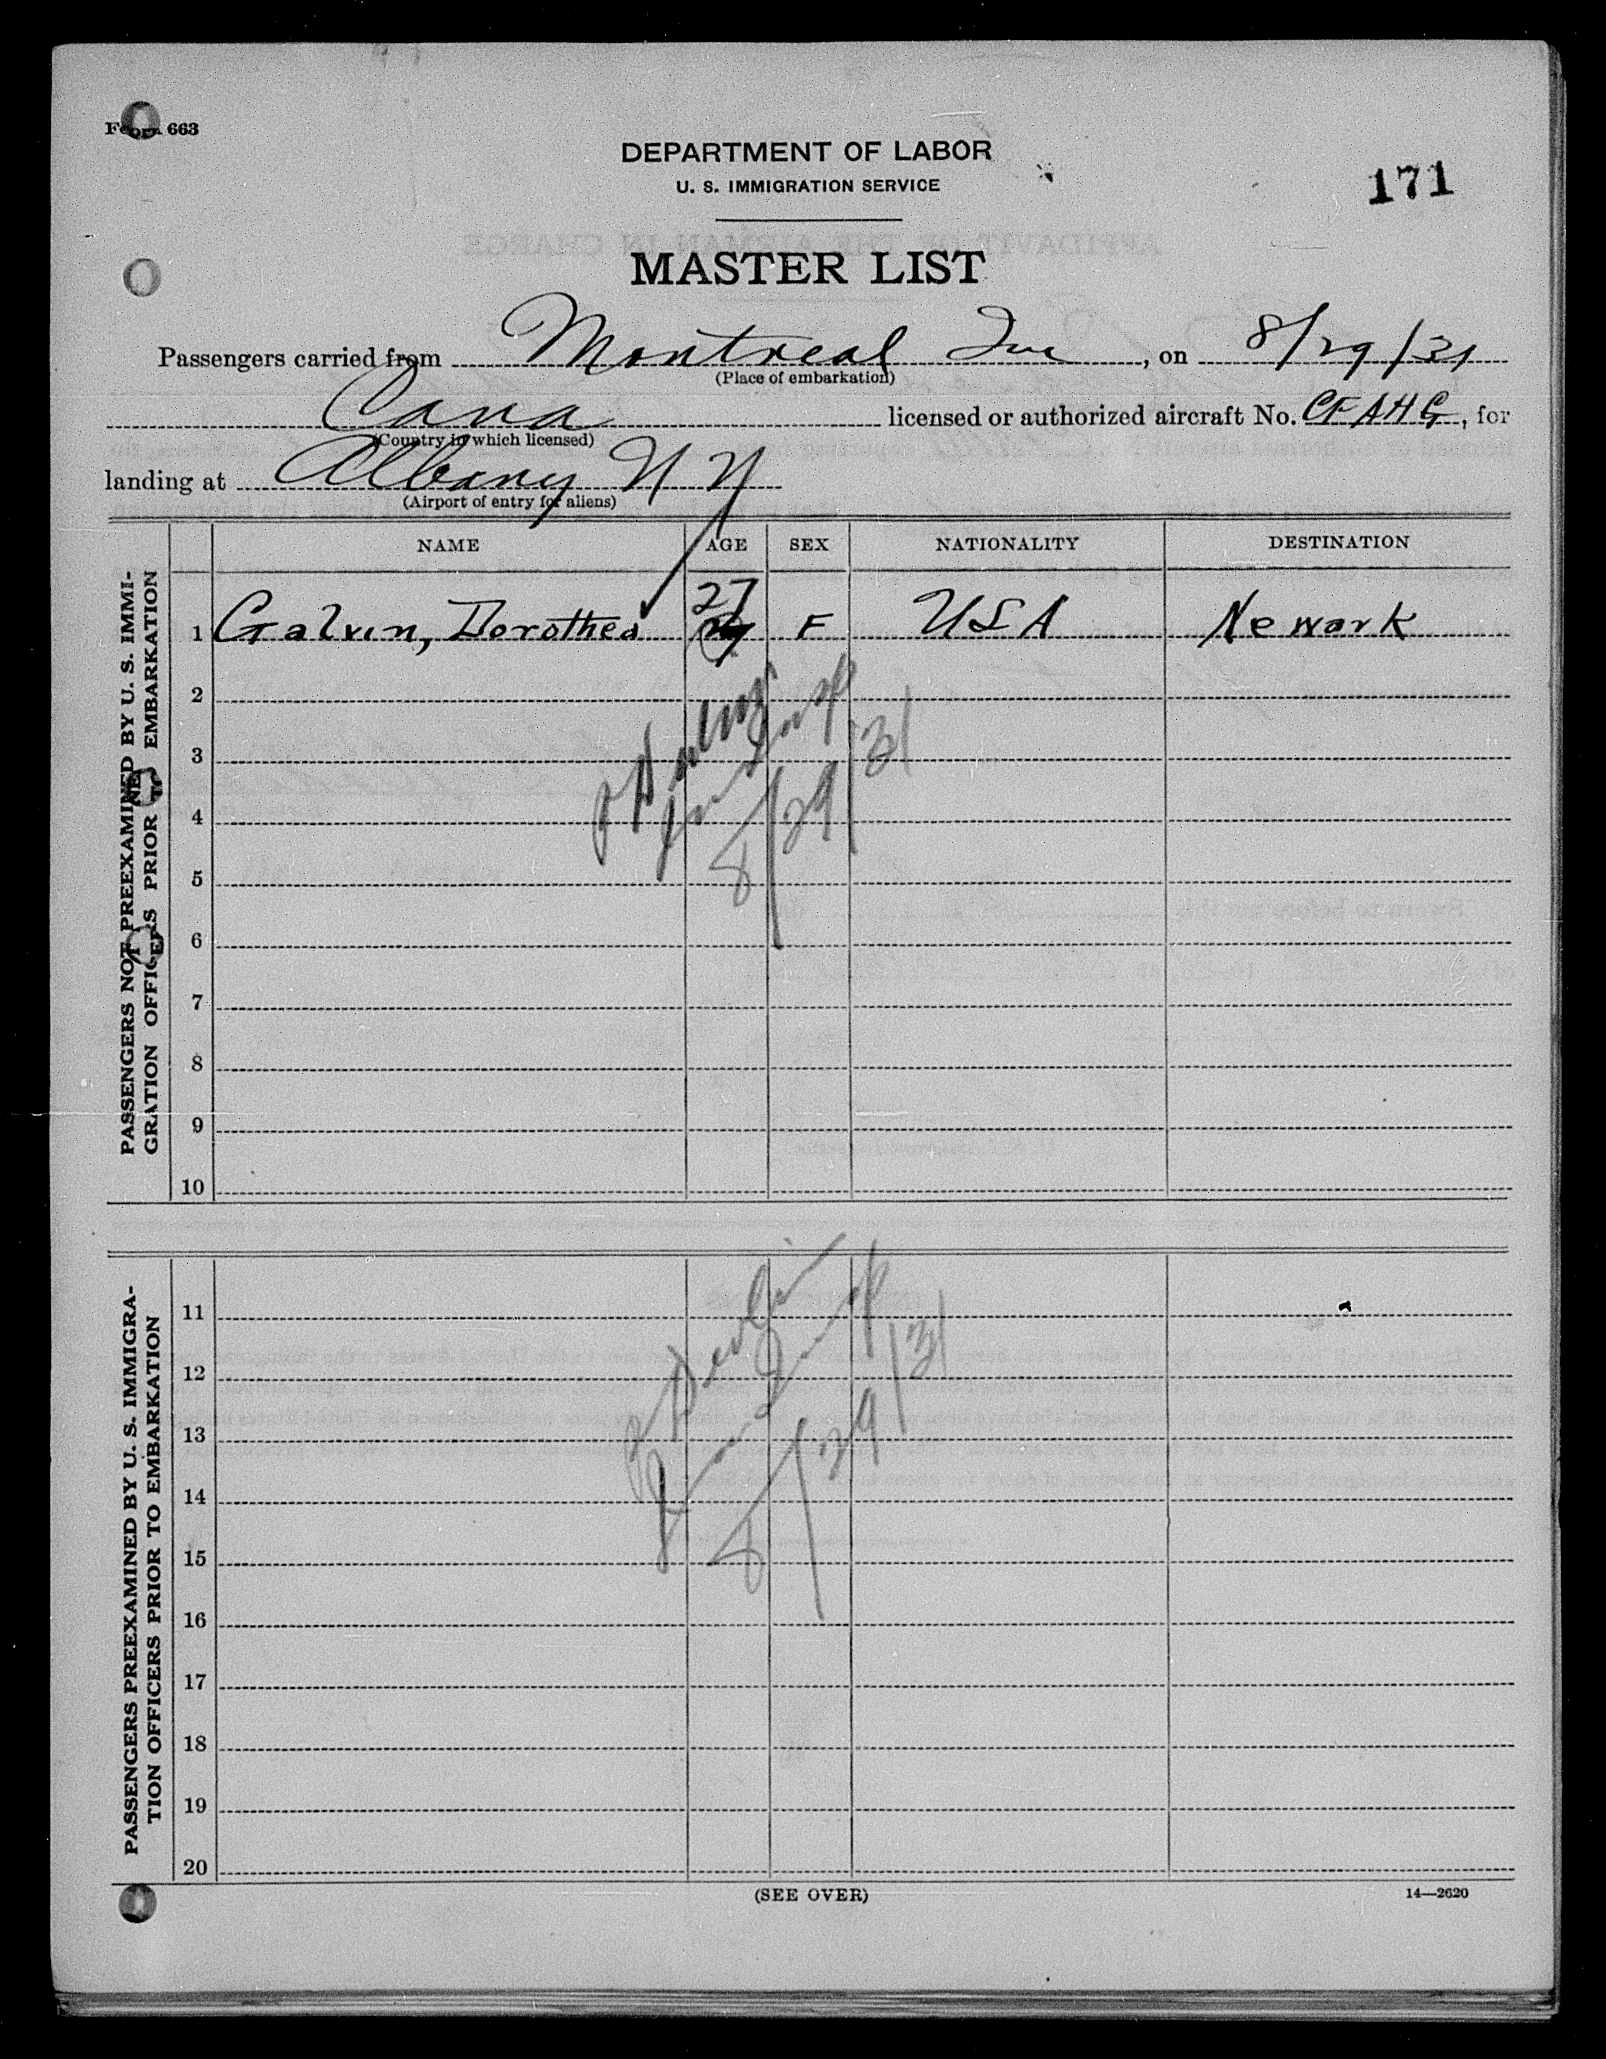 Form 663
DEPARTMENT OF LABOR
U. S. IMMIGRATION SERVICE
171
MASTER LIST
Passengers carried from Montreal Que, on 8/29/31
(Place of embarkation)
Cana licensed or authorized aircraft No. CFAHG, for
(Country in which licensed)
landing at Albany N Y
(Airport of entry for aliens)
NAME AGE SEX NATIONALITY DESTINATION
PASSENGERS NOT PREEXAMINED BY U. S. IMMI-
GRATION OFFICERS PRIOR TO EMBARKATION
27
1 Galvin, Dorothea F USA Newark
2
3
4
5
6
7
8
9
10
8/29/31
PASSENGERS PREEXAMINED BY U. S. IMMIGRA-
TION OFFICERS PRIOR TO EMBARKATION
11
12
13
14
15
16
17
18
19
20
8/29/31
(SEE OVER)
14—2620